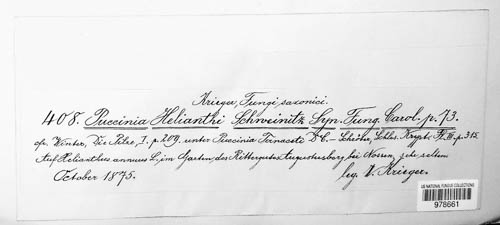 Krieger, Fungi saxonici.
408. Puccinia Helianthi Schweinitz Syn. Fung. Carol. p. 73.
cfr. Winter, Die Pilze, I. p. 209. unter Puccinia Tanaceti D C. – Schröter, Schles. Krypt. Fl. III. p. 315.
Auf Helianthus annuus L., im Garten des Rittergutes Augustusberg bei Nossen, sehr selten.
October 1875.
leg. W. Krieger.
US NATIONAL FUNGUS COLLECTIONS
978661